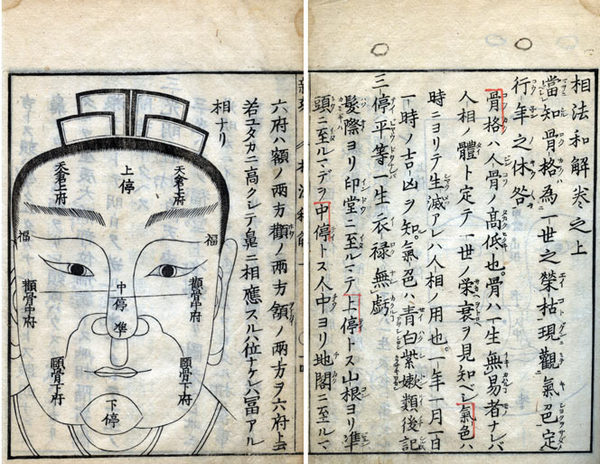 相法和解巻之上
當知骨格為一世之榮枯現觀氣色定
行年之休咎
骨格ハ人骨ノ髙低也骨ハ一生無易者ナレバ
人相ノ體ト定テ一世ノ栄衰ヲ見知ベシ氣色ハ
時ニヨリテ生滅アレハ人相ノ用也一年一月一日
一時ノ吉凶ヲ知氣色ハ青白紫嫩類後記
三停平等一生衣禄無虧
髮際ヨリ印堂ニ至ルマテ上停トス山根ヨリ準
頭ニ至ルマデヲ中停トス人中ヨリ地閣ニ至ルマ
六府ハ額ノ両方顴ノ両方頷ノ両方ヲ六府ト云
若ユタカニ高クシテ鼻ニ相應スルハ位ナケレバ冨アル
相ナリ
上停
天倉上府
天倉上府
福
福
顴骨中府
顴骨中府
中停
準
頤骨下府
頤骨下府
下停